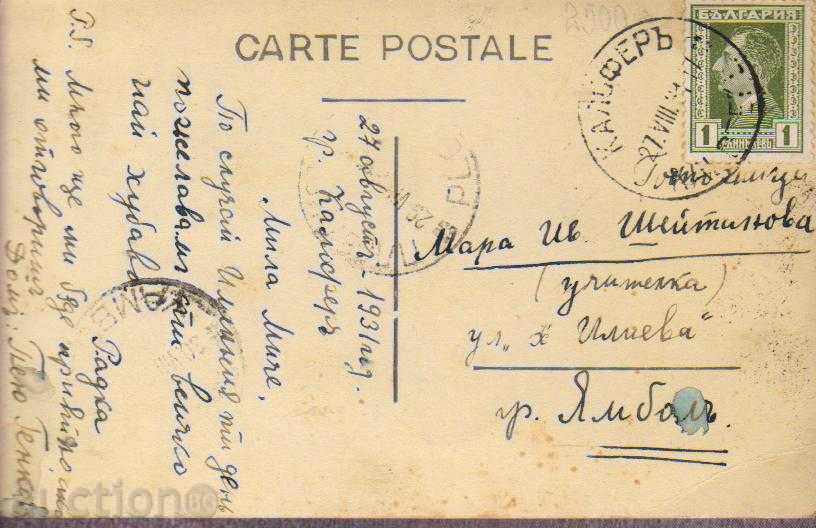 2500
CARTE POSTALE
БЪЛГАРИЯ
1 1
ЕДИНЪ ЛЕВЪ
КАЛОФЕРЪ
28 VIII
PLOVDIV
27 августъ - 1931 год.
гр. Калоферъ
Мила Миче,
По случай Имения ти день
пожелавамъ ти всичко
най хубаво
Радка
P.S. Много ще ми бъде приятно, ако
ми отговоришъ
Госпожица
Мара Ив. Шейтанова
(учителка)
ул. „х Илаева"
гр. Ямболъ
auction BG